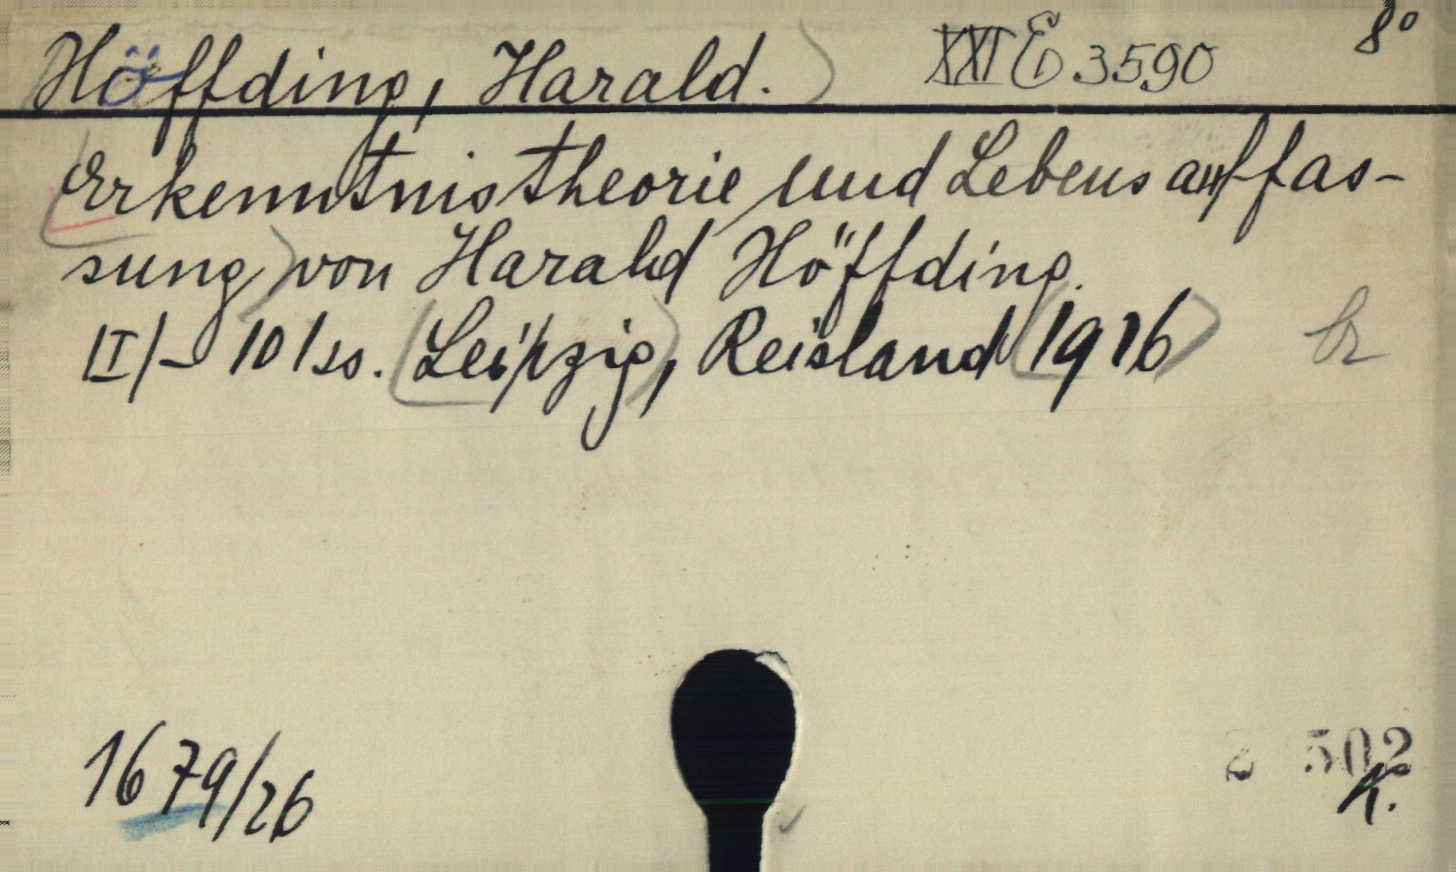 Höffding, Harald. XXI E 3590 8°
Erkenntnistheorie und Lebensauffas-
sung von Harald Höffding.
[I]-101 ss. Leipzig, Reisland 1916
1679/26
2 502
K.